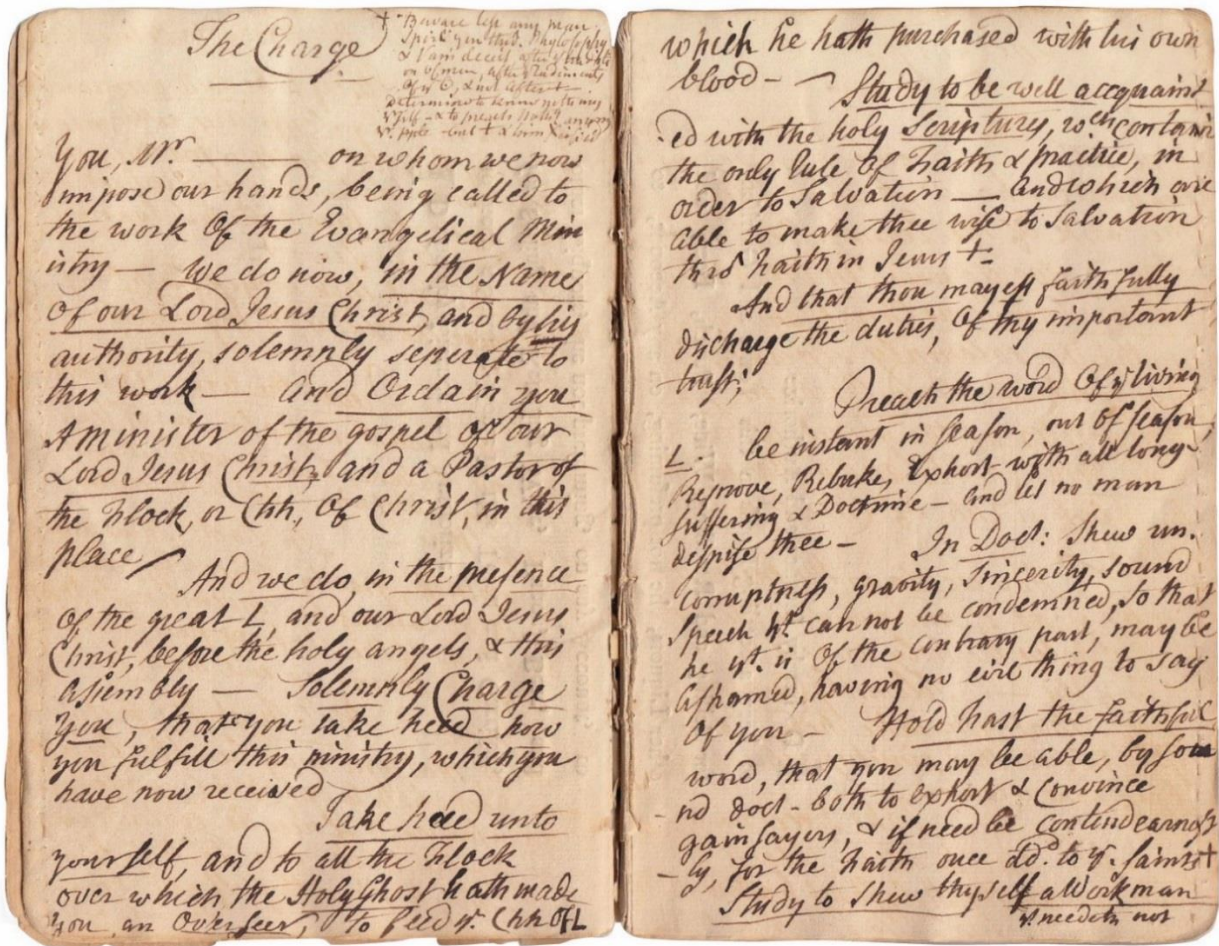 The Charge
+ Beware lest any man
spoil you thrô Phylosophy
& vain deceit, after ye
of men, after ye Rudiments
of ye & not after +
Determine to know nothing
yself & to preach among
ye pple but + & him
You, Mr. ——— on whom we now
impose our hands, being called to
the work Of the Evangelical Min
istry — we do now, in the Name
Of our Lord Jesus Christ, and by his
authority, solemnly seperate to
this work — and Ordain you
A minister of the gospel of our
Lord Jesus Christ, and a Pastor of
the Flock, or Chh, Of Christ, in this
place
And we do, in the presence
Of the great L, and our Lord Jesus
Christ, before the holy angels, & this
assembly — Solemnly Charge
You, that you take heed how
you fulfill this ministry, which you
have now received
Take heed unto
yourself, and to all the Flock
over which the Holy Ghost hath made
you an Overseer, to feed ye Chh Of L
which he hath purchased with his own
blood —
Study to be well accquaint
-ed with the holy Scriptures, wch contain
the only Rule Of Faith & practice, in
order to Salvation — and which are
able to make thee wise to Salvation
thrô Faith in Jesus +.
And that thou mayest faithfully
discharge the duties, Of thy important
trust;
Preach the word Of ye living
L. be instant in season, out Of season,
Reprove, Rebuke, Exhort with all long-
suffering & Doctrine — and let no man
despise thee —
In Doct: Shew un-
corruptness, gravity, Sincerity, sound
Speech yt cannot be condemned, so that
he yt is Of the contrary part, may be
ashamed, having no evil thing to say
Of you —
Hold Fast the faithful
word, that you may be able, by sou
nd doct - both to Exhort & Convince
gainsayers, & if need be contend earnest
-ly, for the Faith once dd. to ye Saints +
Study to shew thyself a Workman
yt needeth not